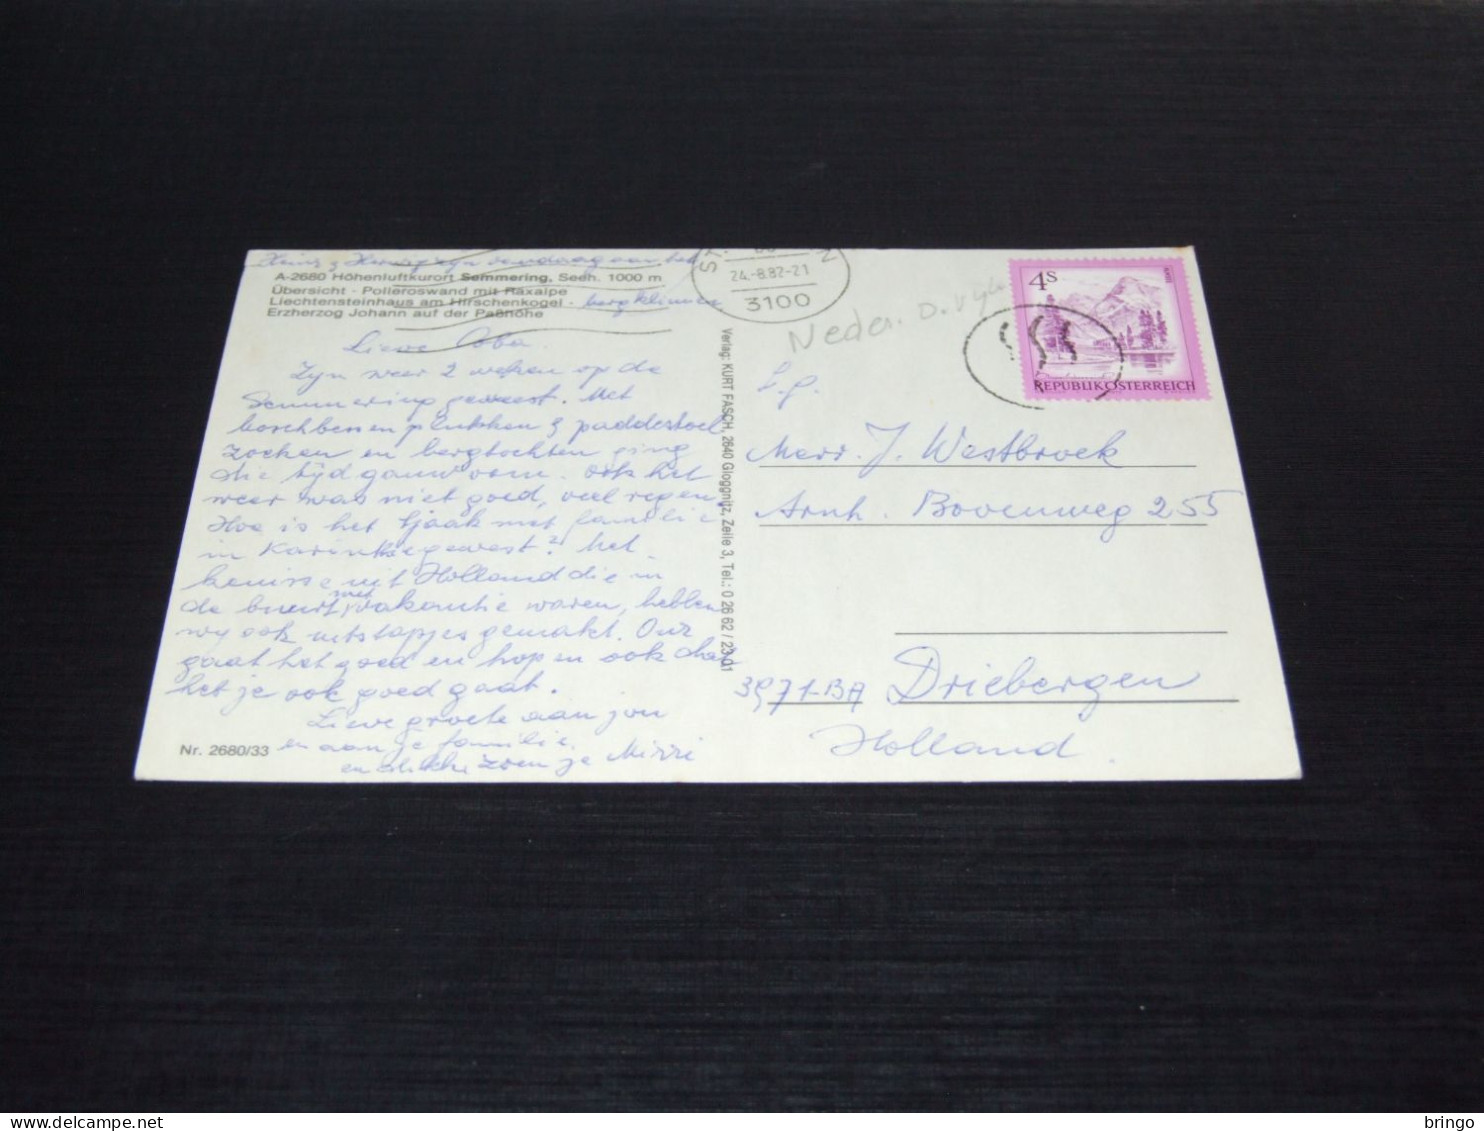 Heinz & Herwig zijn vandaag aan het
A-2680 Höhenluftkurort Semmering, Seeh. 1000 m
Übersicht - Polleroswand mit Raxalpe
Liechtensteinhaus am Hirschenkogel - bergklimmen
Erzherzog Johann auf der Paßhöhe
Lieve Coba.
Zyn weer 2 weken op de
Semmering geweest. Met
boschbessen plukken & paddestoel
zoeken en bergtochten ging
die tijd gauw om. ook het
weer was niet goed, veel regen
Hoe is het Tjaak met familie
in Karinthie geweest? Met
kennisse uit Holland die in
de buurt met vakantie waren, hebben
wy ook uitstapjes gemaakt. Ons
gaat het goed en hopen ook dat
het je ook goed gaat.
Lieve groete aan jou
en aan je familie.
en zoen je Mizzi
Nr. 2680/33
Verlag: KURT FASCH, 2640 Gloggnitz, Zeile 3, Tel.: 0 26 62 / 23 01
ST.
N
24.-8.82-21
3100
Neder. D.
4S
REPUBLIK ÖSTERREICH
Mevr. J. Westbroek
Arnh. Bovenweg 255
3971-BA Driebergen
Holland.
bringo